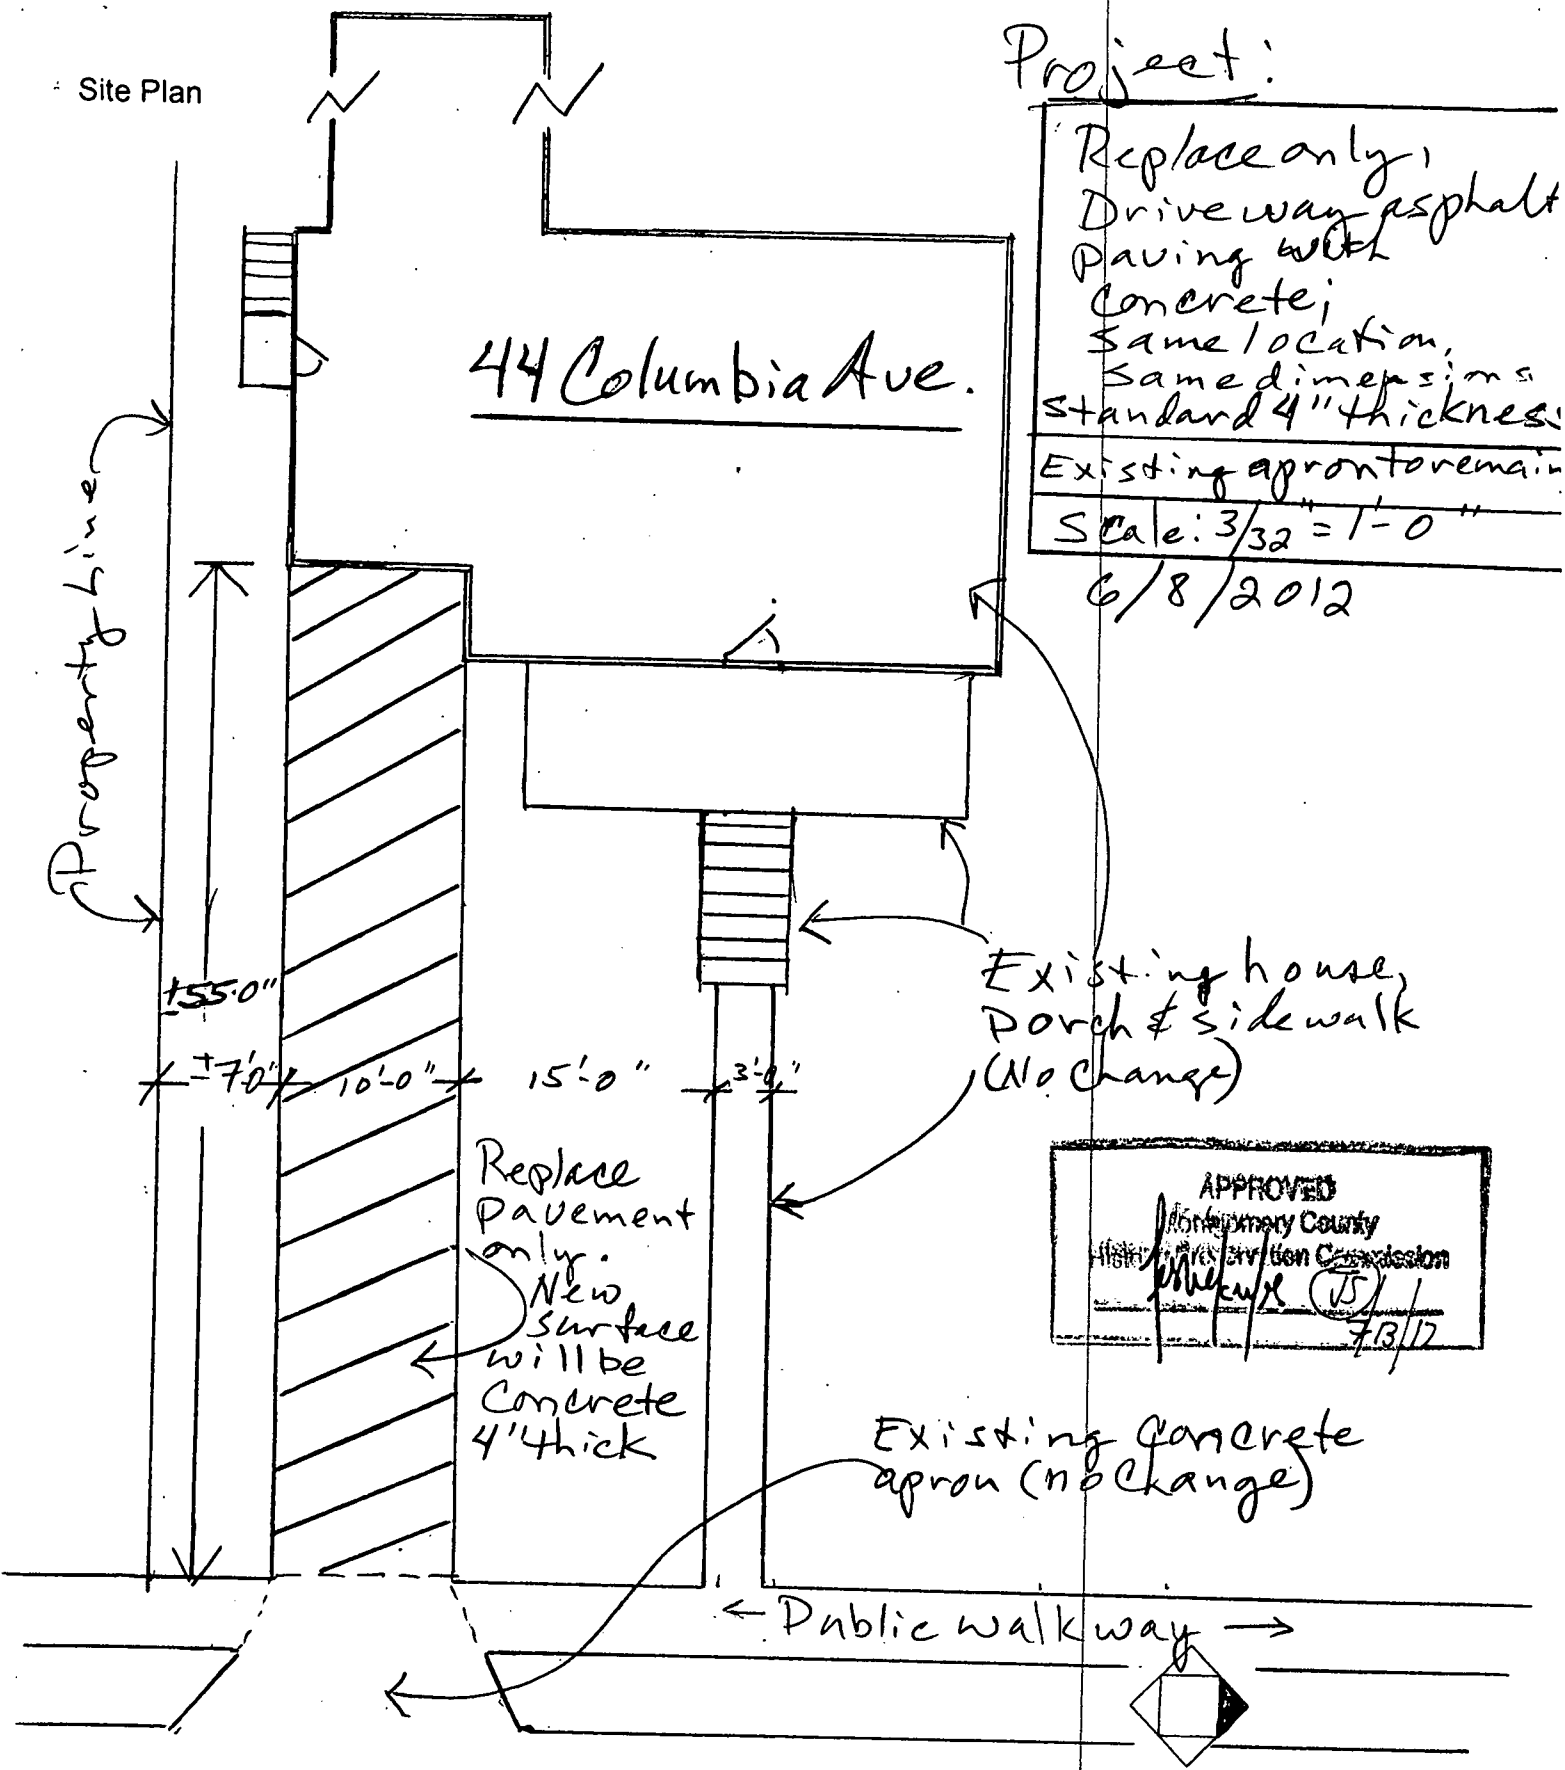 Site Plan
Project:
Replace only,
Driveway asphalt
paving with
concrete;
same location,
same dimensions
standard 4" thickness
Existing apron to remain
Scale: 3/32" = 1'-0"
6/8/2012
44 Columbia Ave.
Property Line
±55'.0"
±7'0" 10'-0" 15'-0" 3'-0"
Existing house,
porch & sidewalk
(No change)
Replace
pavement
only.
New
surface
will be
Concrete
4" thick
APPROVED
Montgomery County
Historic Preservation Commission
JS
7/13/12
Existing concrete
apron (no change)
← Public walkway →